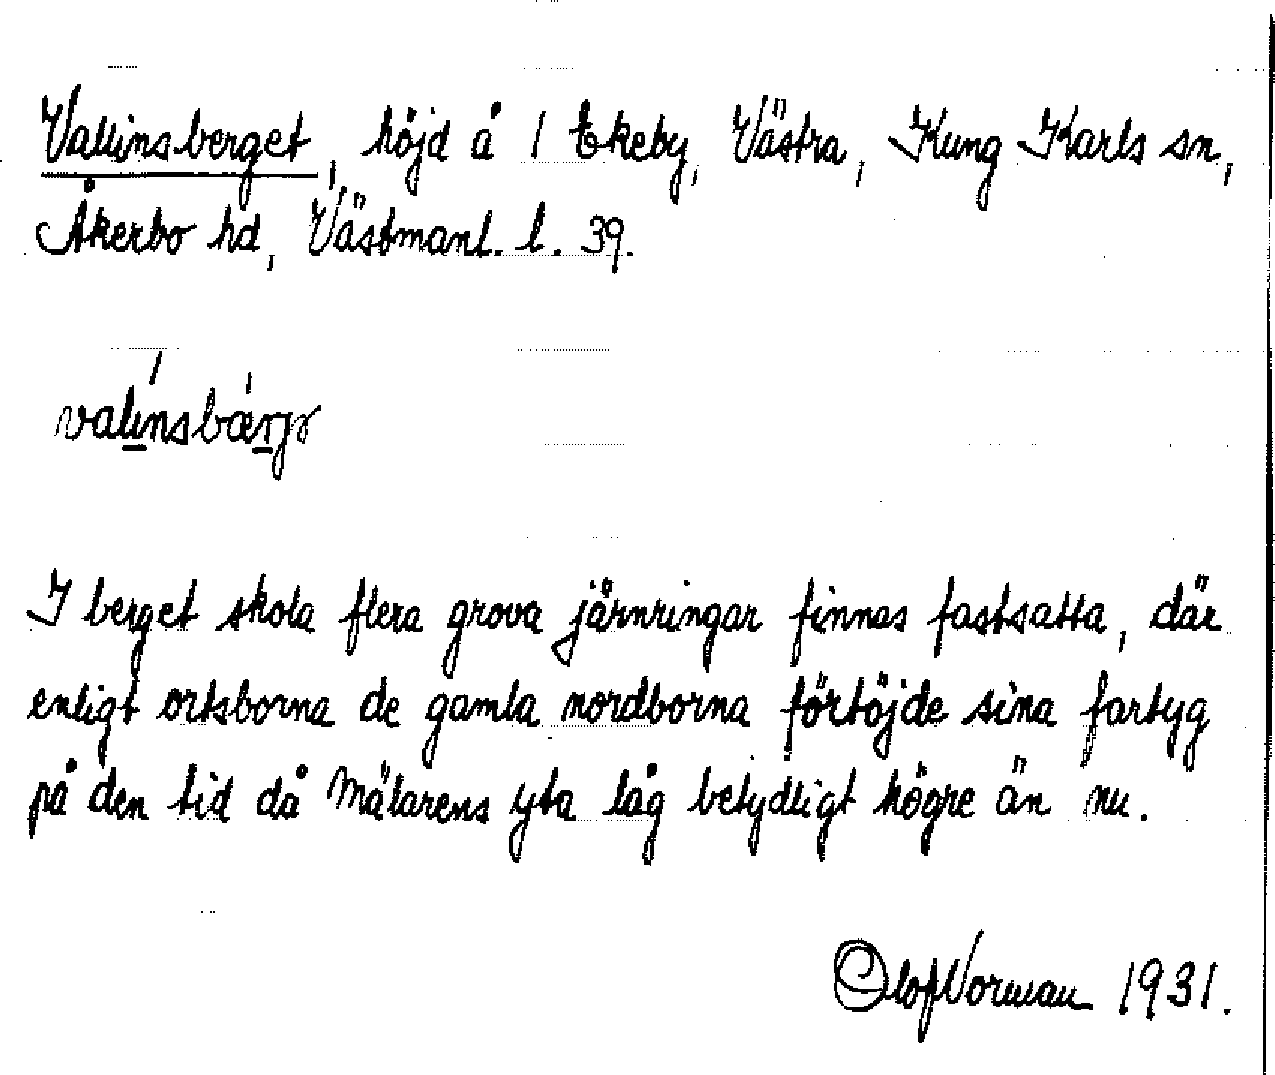 Vallinsberget, höjd å 1 Ekeby, Västra, Kung Karls sn,
Åkerbo hd, Västmanl. l. 39.
valinsbærjə
I berget skola flera grova järnringar finnas fastsatta, där
enligt ortsborna de gamla nordborna förtöjde sina fartyg
på den tid då Mälarens yta låg betydligt högre än nu.
Olof Norman 1931.